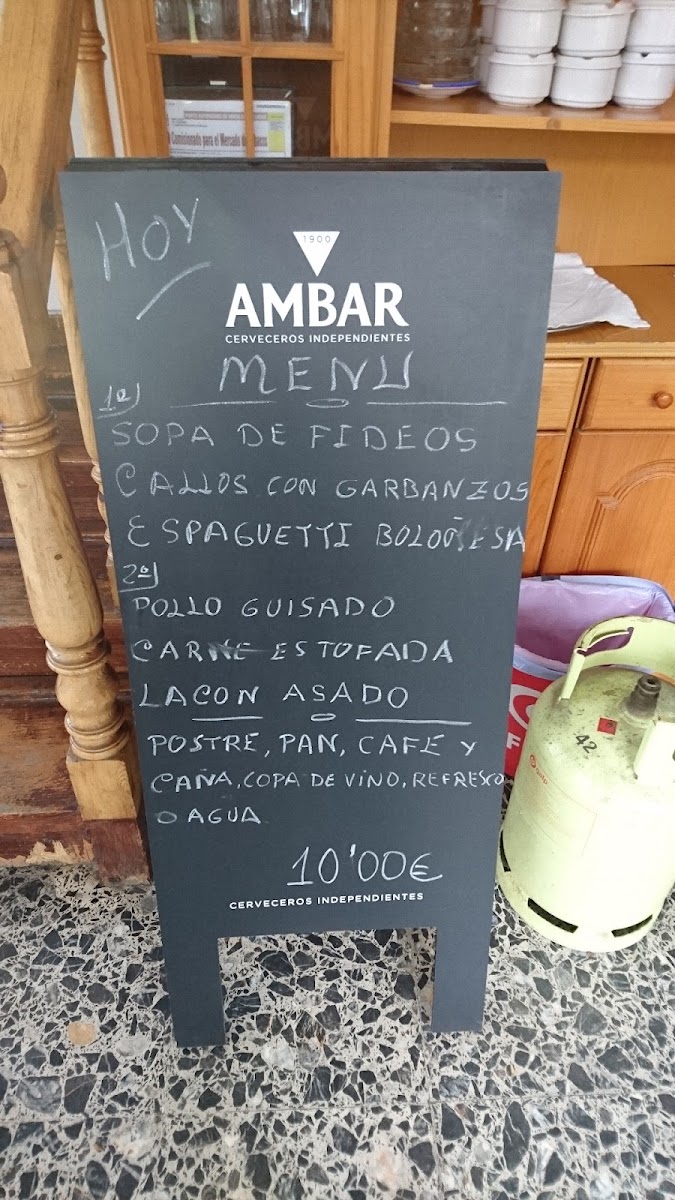 Comisionado para el Mercado de
HOY
1900
AMBAR
CERVECEROS INDEPENDIENTES
MENU
1º
SOPA DE FIDEOS
CALLOS CON GARBANZOS
ESPAGUETTI BOLOÑESA
2º
POLLO GUISADO
CARNE ESTOFADA
LACON ASADO
POSTRE, PAN, CAFE Y
CAÑA, COPA DE VINO, REFRESCO
O AGUA
10'00€
CERVECEROS INDEPENDIENTES
42